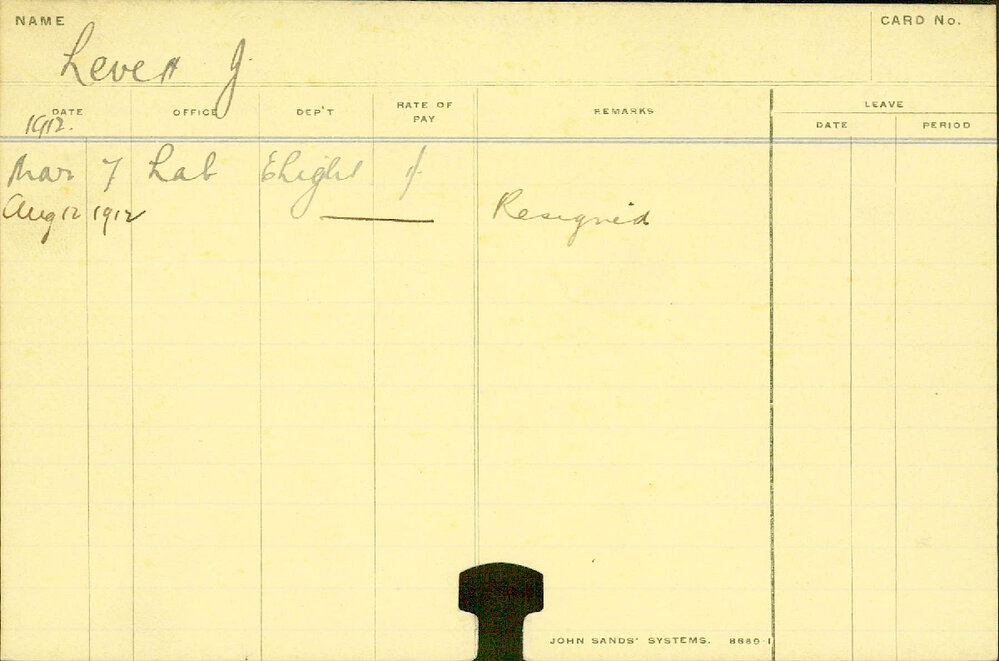 NAME CARD No.
Levett J
DATE OFFICE DEP'T RATE OF PAY REMARKS LEAVE
DATE PERIOD
1912.
Mar 7 Lab Elight
Aug 12 1912 Resigned
JOHN SANDS' SYSTEMS. 8680-1